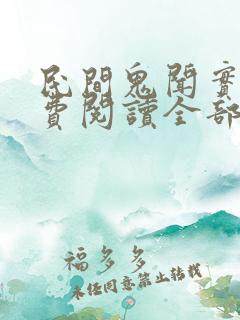 民間鬼聞實
費閱讀全部
福多多
未經同意禁止轉載